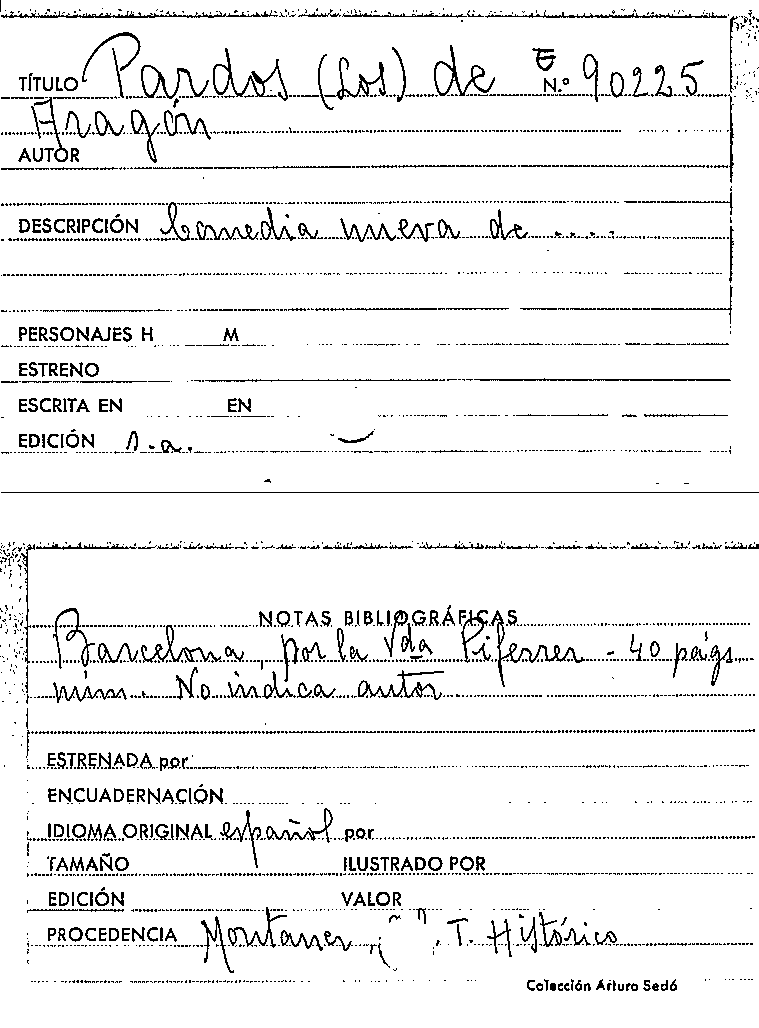 TÍTULO Pardos (Los) de N.º 90225
Aragón
AUTOR
DESCRIPCIÓN Comedia nueva de ....
PERSONAJES H M
ESTRENO
ESCRITA EN EN
EDICIÓN s.a.
NOTAS BIBLIOGRÁFICAS
Barcelona, por la Vda Piferrer - 40 págs
núm. No indica autor.
ESTRENADA por
ENCUADERNACIÓN
IDIOMA ORIGINAL español por
TAMAÑO ILUSTRADO POR
EDICIÓN VALOR
PROCEDENCIA Montaner, T. Histórico
Colección Arturo Sedó